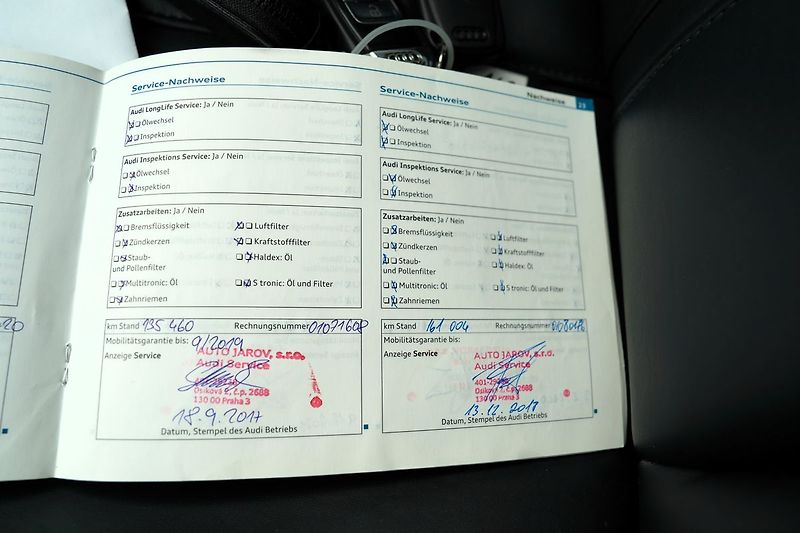 Service-Nachweise
Audi LongLife Service: Ja / Nein
Ölwechsel
Inspektion
Audi Inspektions Service: Ja / Nein
Ölwechsel
Inspektion
Zusatzarbeiten: Ja / Nein
Bremsflüssigkeit
Luftfilter
Zündkerzen
Kraftstofffilter
Staub-
und Pollenfilter
Haldex: Öl
Multitronic: Öl
S tronic: Öl und Filter
Zahnriemen
km Stand 135 460 Rechnungsnummer
Mobilitätsgarantie bis: 9/2019
Anzeige Service
AUTO JAROV, s.r.o.
Audi Service
Osiková 2, č.p. 2688
130 00 Praha 3
18.9.2017
Datum, Stempel des Audi Betriebs
Nachweise 23
Service-Nachweise
Audi LongLife Service: Ja / Nein
Ölwechsel
Inspektion
Audi Inspektions Service: Ja / Nein
Ölwechsel
Inspektion
Zusatzarbeiten: Ja / Nein
Bremsflüssigkeit
Luftfilter
Zündkerzen
Kraftstofffilter
Staub-
und Pollenfilter
Haldex: Öl
Multitronic: Öl
S tronic: Öl und Filter
Zahnriemen
km Stand 161 004 Rechnungsnummer
Mobilitätsgarantie bis:
Anzeige Service
AUTO JAROV, s.r.o.
Audi Service
Osiková 2, č.p. 2688
130 00 Praha 3
13.12.2018
Datum, Stempel des Audi Betriebs